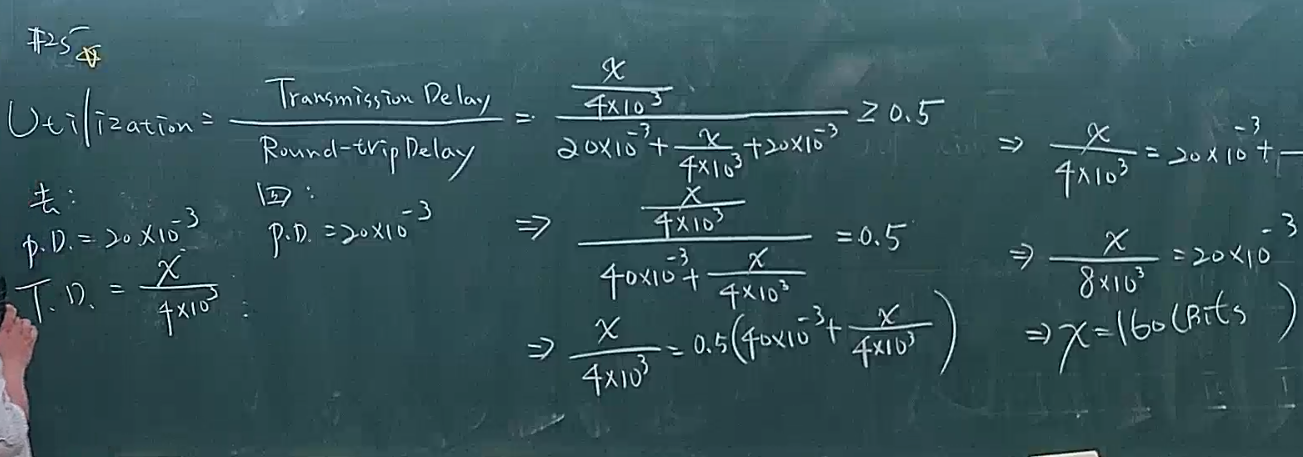 #25
Utilization = Transmission Delay / Round-trip Delay = (x / 4×10³) / (20×10⁻³ + x / 4×10³ + 20×10⁻³) ≥ 0.5
去: 回:
P.D. = 20×10⁻³ P.D. = 20×10⁻³
T.D. = x / 4×10³
⇒ (x / 4×10³) / (40×10⁻³ + x / 4×10³) = 0.5
⇒ x / 4×10³ = 0.5(40×10⁻³ + x / 4×10³)
⇒ x / 4×10³ = 20×10⁻³ +
⇒ x / 8×10³ = 20×10⁻³
⇒ x = 160 (Bits)